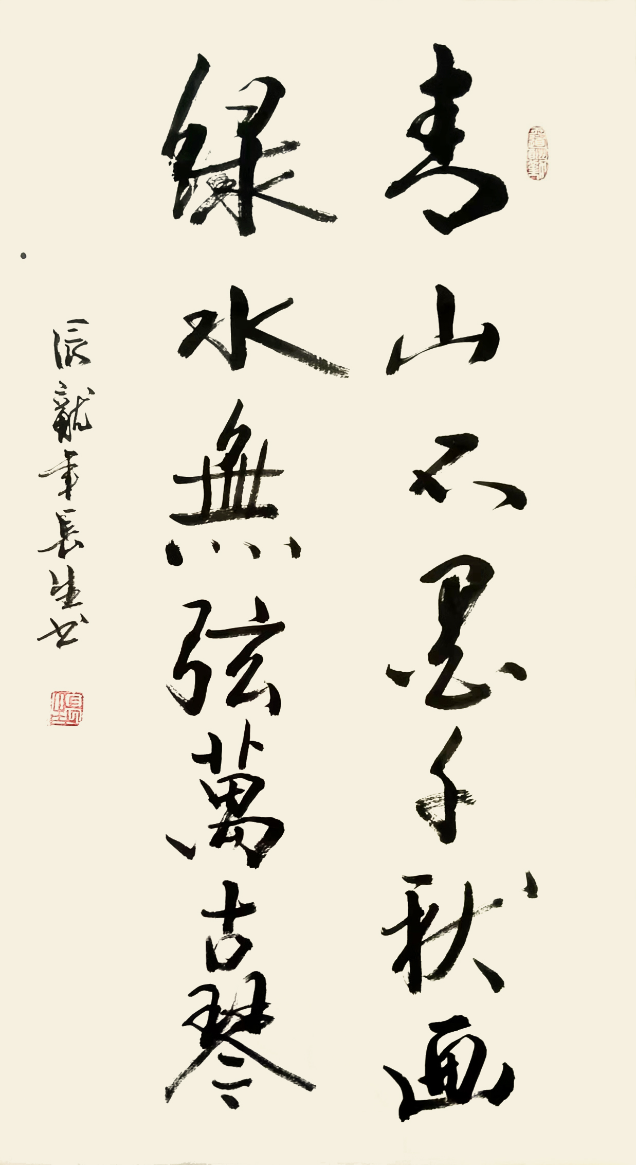 青山不墨千秋画
綠水無弦萬古琴
辰龍年長生书